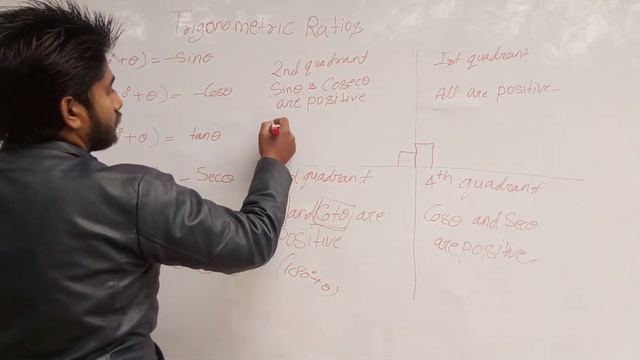 Trigonometric Ratios
° + θ) = - Sinθ
° + θ) = - Cosθ
° + θ) = tanθ
- Secθ
2nd quadrant
Sinθ & Cosecθ
are positive
Ist quadrant
All are positive
quadrant
and Cotθ are
Positive
(180°+θ)
4th quadrant
Cosθ and Secθ
are positive